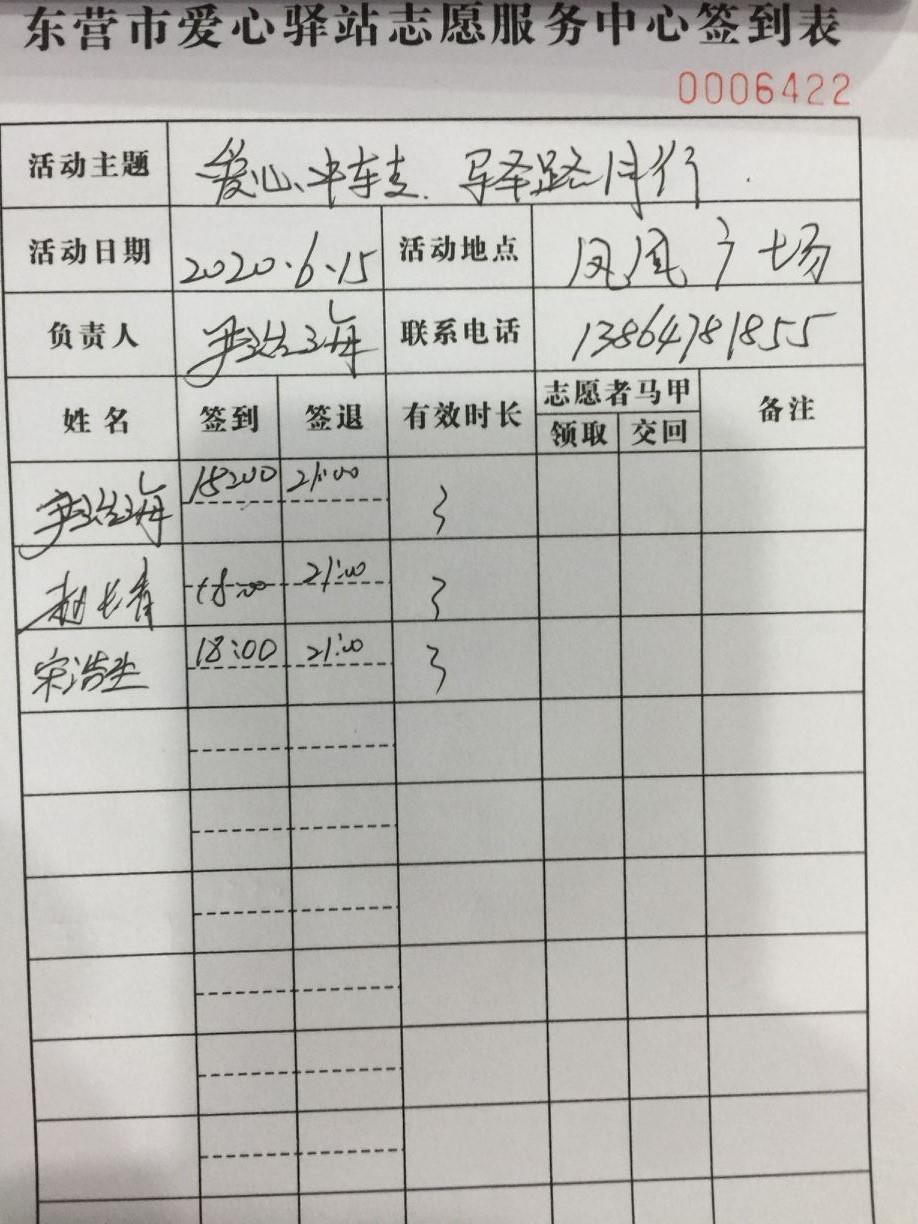 东营市爱心驿站志愿服务中心签到表
0006422
活动主题 爱心 驿路同行
活动日期 2020.6.15 活动地点 凤凰广场
负责人 联系电话 13864781855
姓名 签到 签退 有效时长 志愿者马甲 备注
领取 交回
18:00 21:00 3
赵长青 18:00 21:00 3
宋浩 18:00 21:00 3